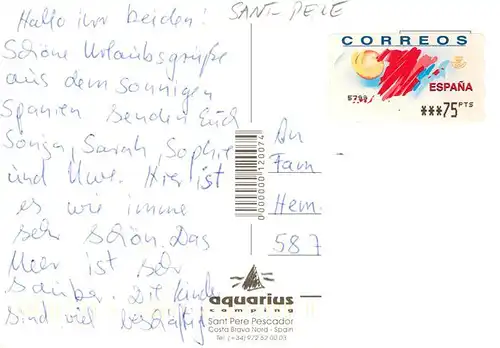 Hallo ihr beiden!
Schöne Urlaubsgrüße
aus dem sonnigen
Spanien senden Euch
Sonja, Sarah, Sophie
und Uwe. Hier ist
es wie imme
sehr schön. Das
Meer ist sehr
sauber. Die Kinde
sind viel beschäftig
SANT-PERE
CORREOS
ESPAÑA
5799
***75 PTS
An
Fam
Hem.
587
0000000 120074
aquarius
camping
Sant Pere Pescador
Costa Brava Nord - Spain
Tel. (+34) 972 52 00 03